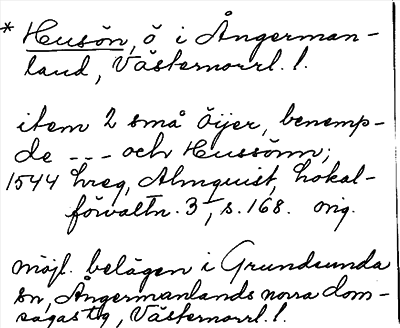 * Husön, ö i Ångerman-
land, Västernorrl. l.
item 2 små öijer, benemp-
de --- och Hussönn;
1544 hreg, Almquist, Lokal-
förvaltn. 3, s. 168. orig.
möjl. belägen i Grundsunda
sn, Ångermanlands norra dom-
sagas tg, Västernorrl. l.